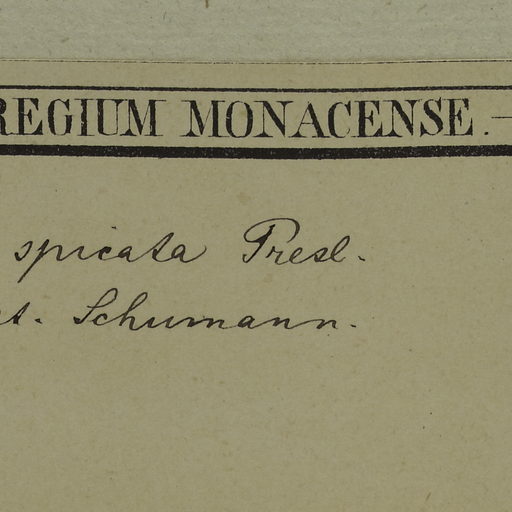 REGIUM MONACENSE.
spicata Presl.
t. Schumann.